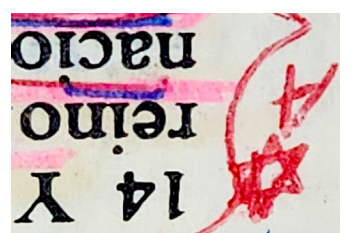 14 Y
reino
nacio